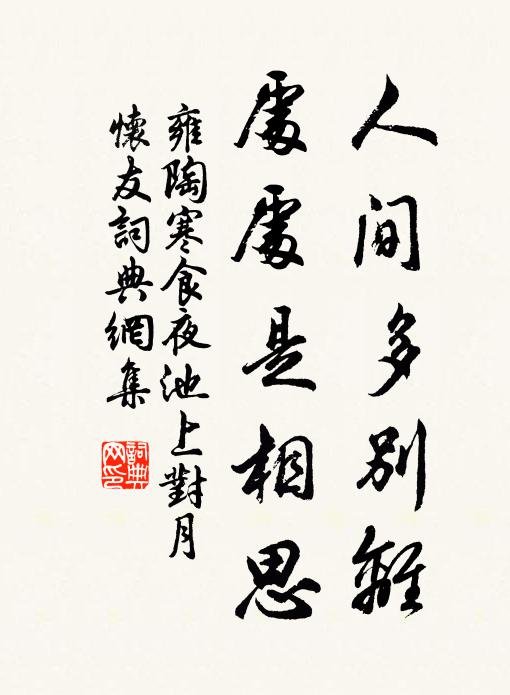 人间多别離
處處是相思
雍陶寒食夜池上對月
懷友詞典網集
詞典
网印